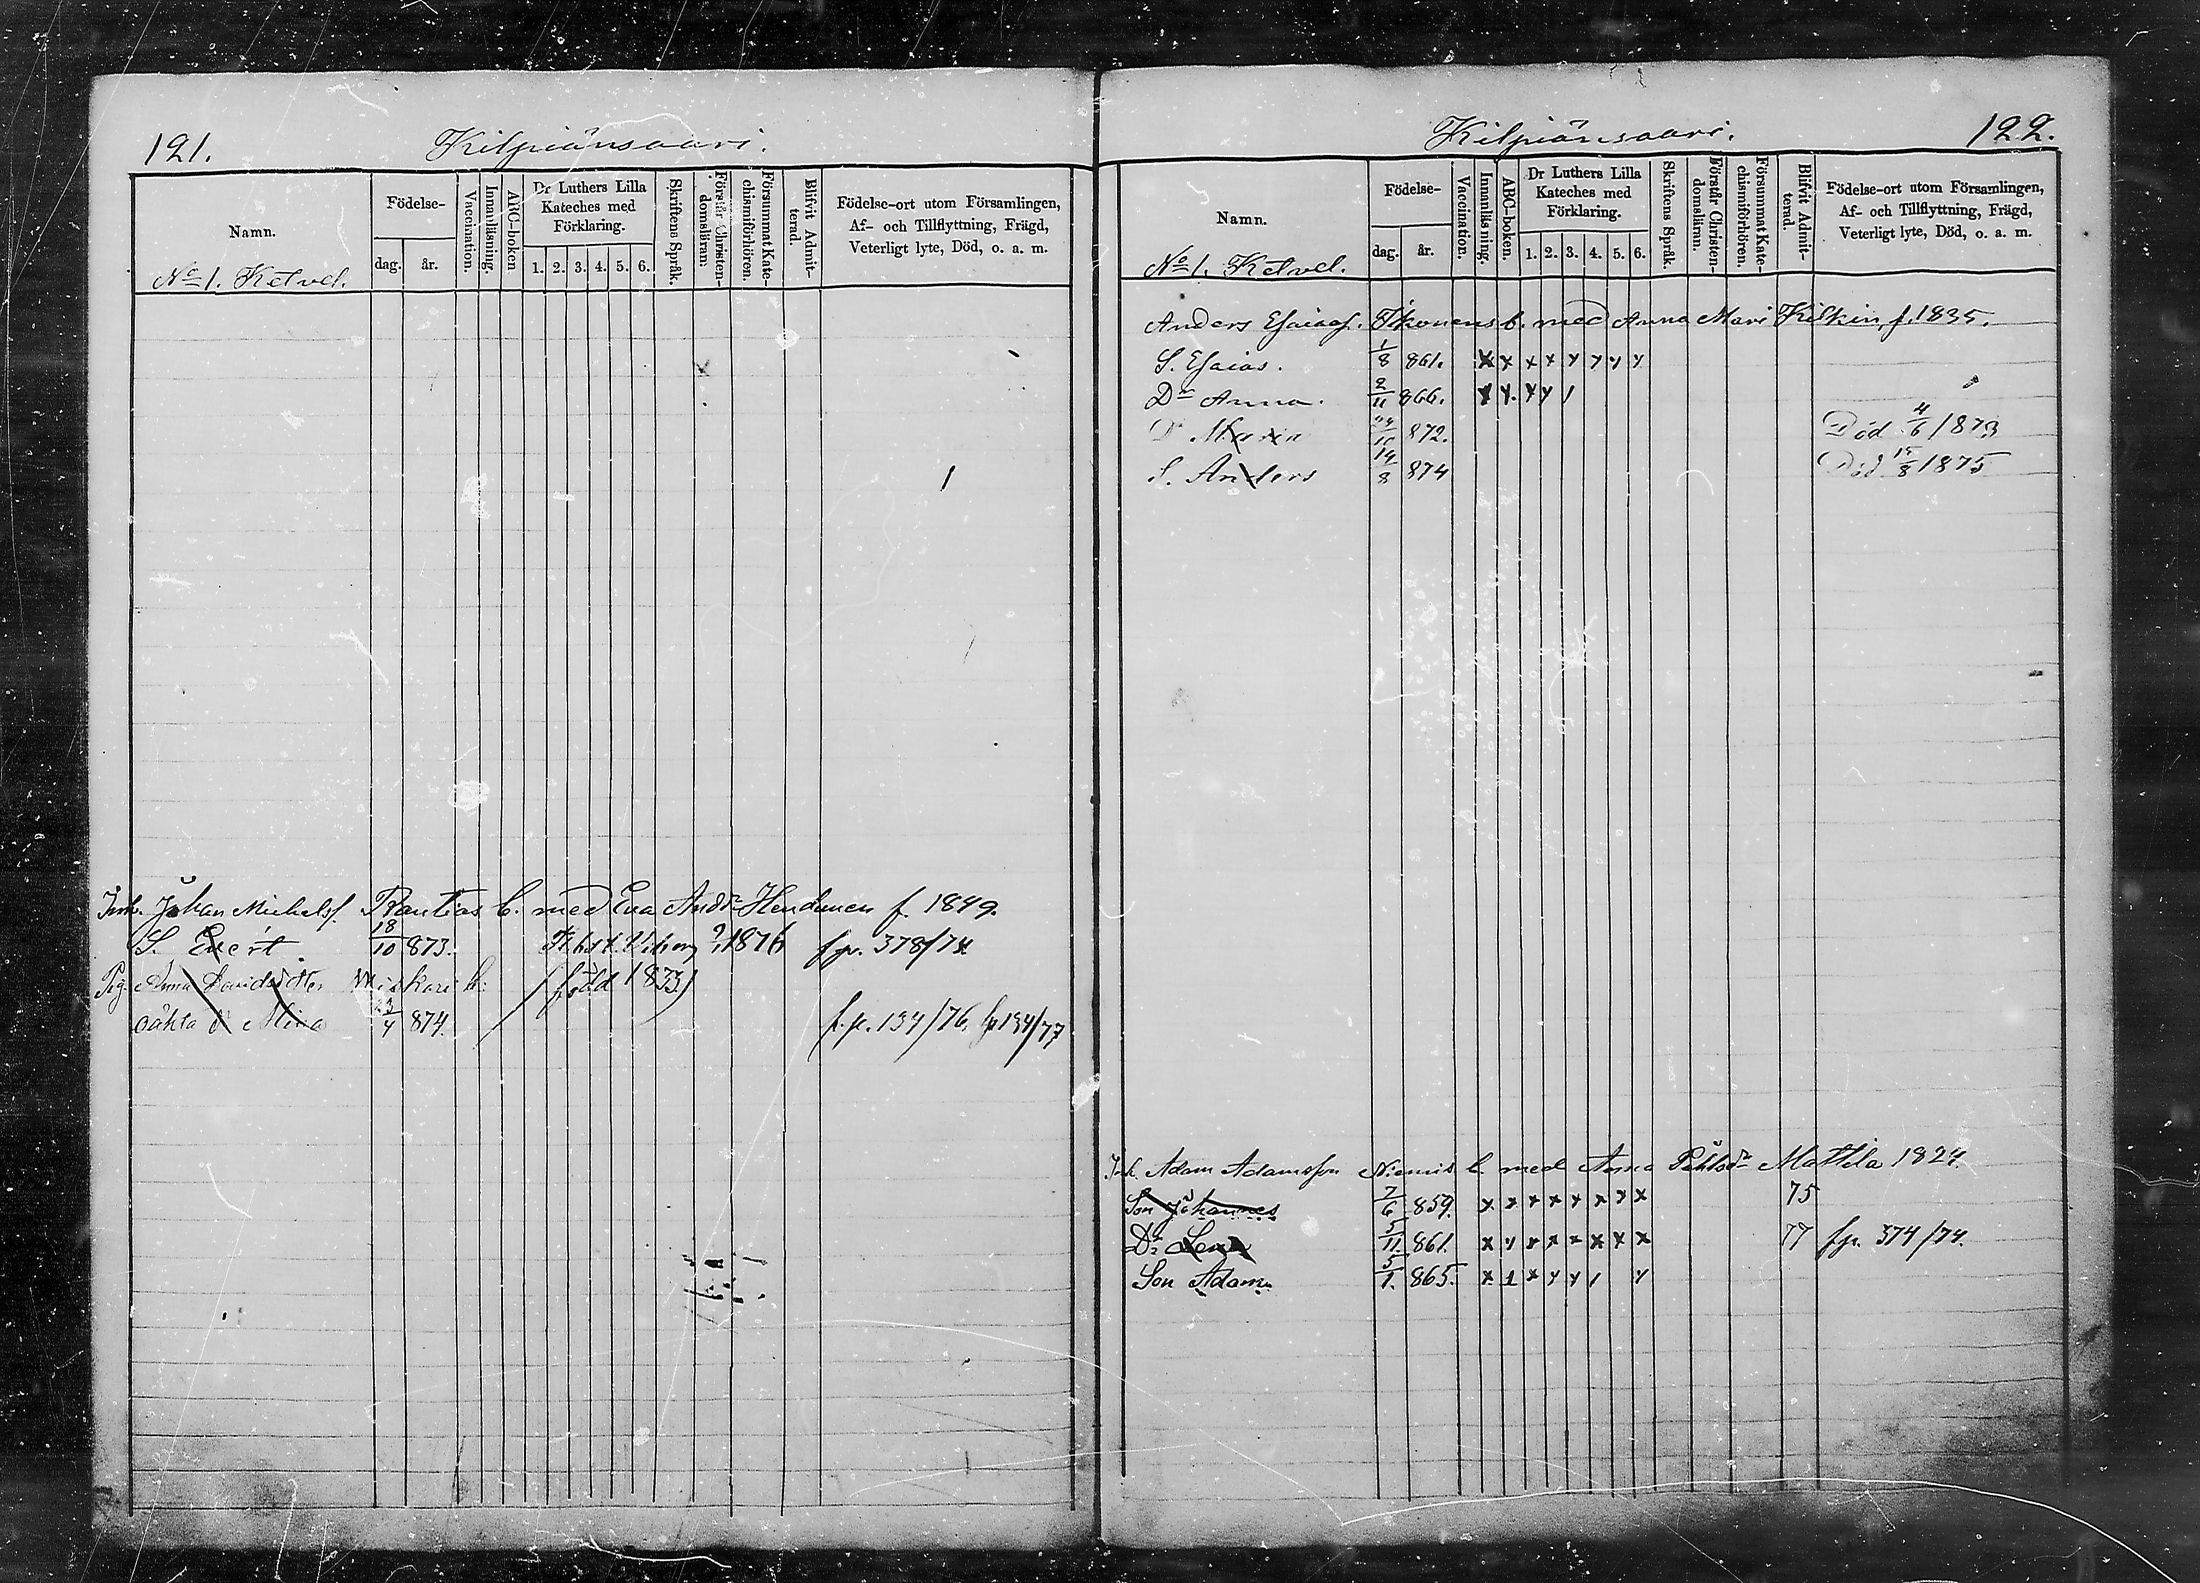 121.
Kilpiänsaari.
Namn.
Födelse-
dag.
år.
Vaccination.
Innanläsning.
ABC-boken
Dr Luthers Lilla
Kateches med
Förklaring.
1. 2. 3. 4. 5. 6.
Skriftens Språk.
Förstår Christen-
domsläran.
Försummat Kate-
chismiförhören.
Blifvit Admit-
terad.
Födelse-ort utom Församlingen,
Af- och Tillflyttning, Frägd,
Veterligt lyte, Död, o. a. m.
No 1. Ketvel.
Inh. Johan Michelss. Rantias b. med Eva Andrdr Hendunen f. 1849.
S. Evert. 18/10 873. 1876 fr. 378/74
Pig. Anna Davidsdtter Miskari b: (född 1833)
oäkta dr Mina 23/4 874. f.p. 134/76, fp 134/77
122.
Kilpiänsaari.
Namn.
Födelse-
dag.
år.
Vaccination.
Innanläsning.
ABC-boken.
Dr Luthers Lilla
Kateches med
Förklaring.
1. 2. 3. 4. 5. 6.
Skriftens Språk.
Förstår Christen-
domsläran.
Försummat Kate-
chismiförhören.
Blifvit Admit-
terad.
Födelse-ort utom Församlingen,
Af- och Tillflyttning, Frägd,
Veterligt lyte, Död, o. a. m.
No 1. Ketvel.
Anders Esaiass. Ikonens b. med Anna Mari Kilkin, f. 1835.
S. Esaias. 1/8 861. x x x x x x x x
Dr Anna. 2/11 866. x x x x /
Dr Maria 872. Död 4/6 1873
S. Anders 14/8 874 Död 15/8 1875
Inh. Adam Adamsson Niemis b. med Anna Pehlsdr Mattila 1824.
Son Johannes 7/6 859. x x x x x x x x 75
Dr Lena 5/11 861. x x x x x x x x 77 fp. 374/74.
Son Adam 5/1. 865. x 1 x x x / x